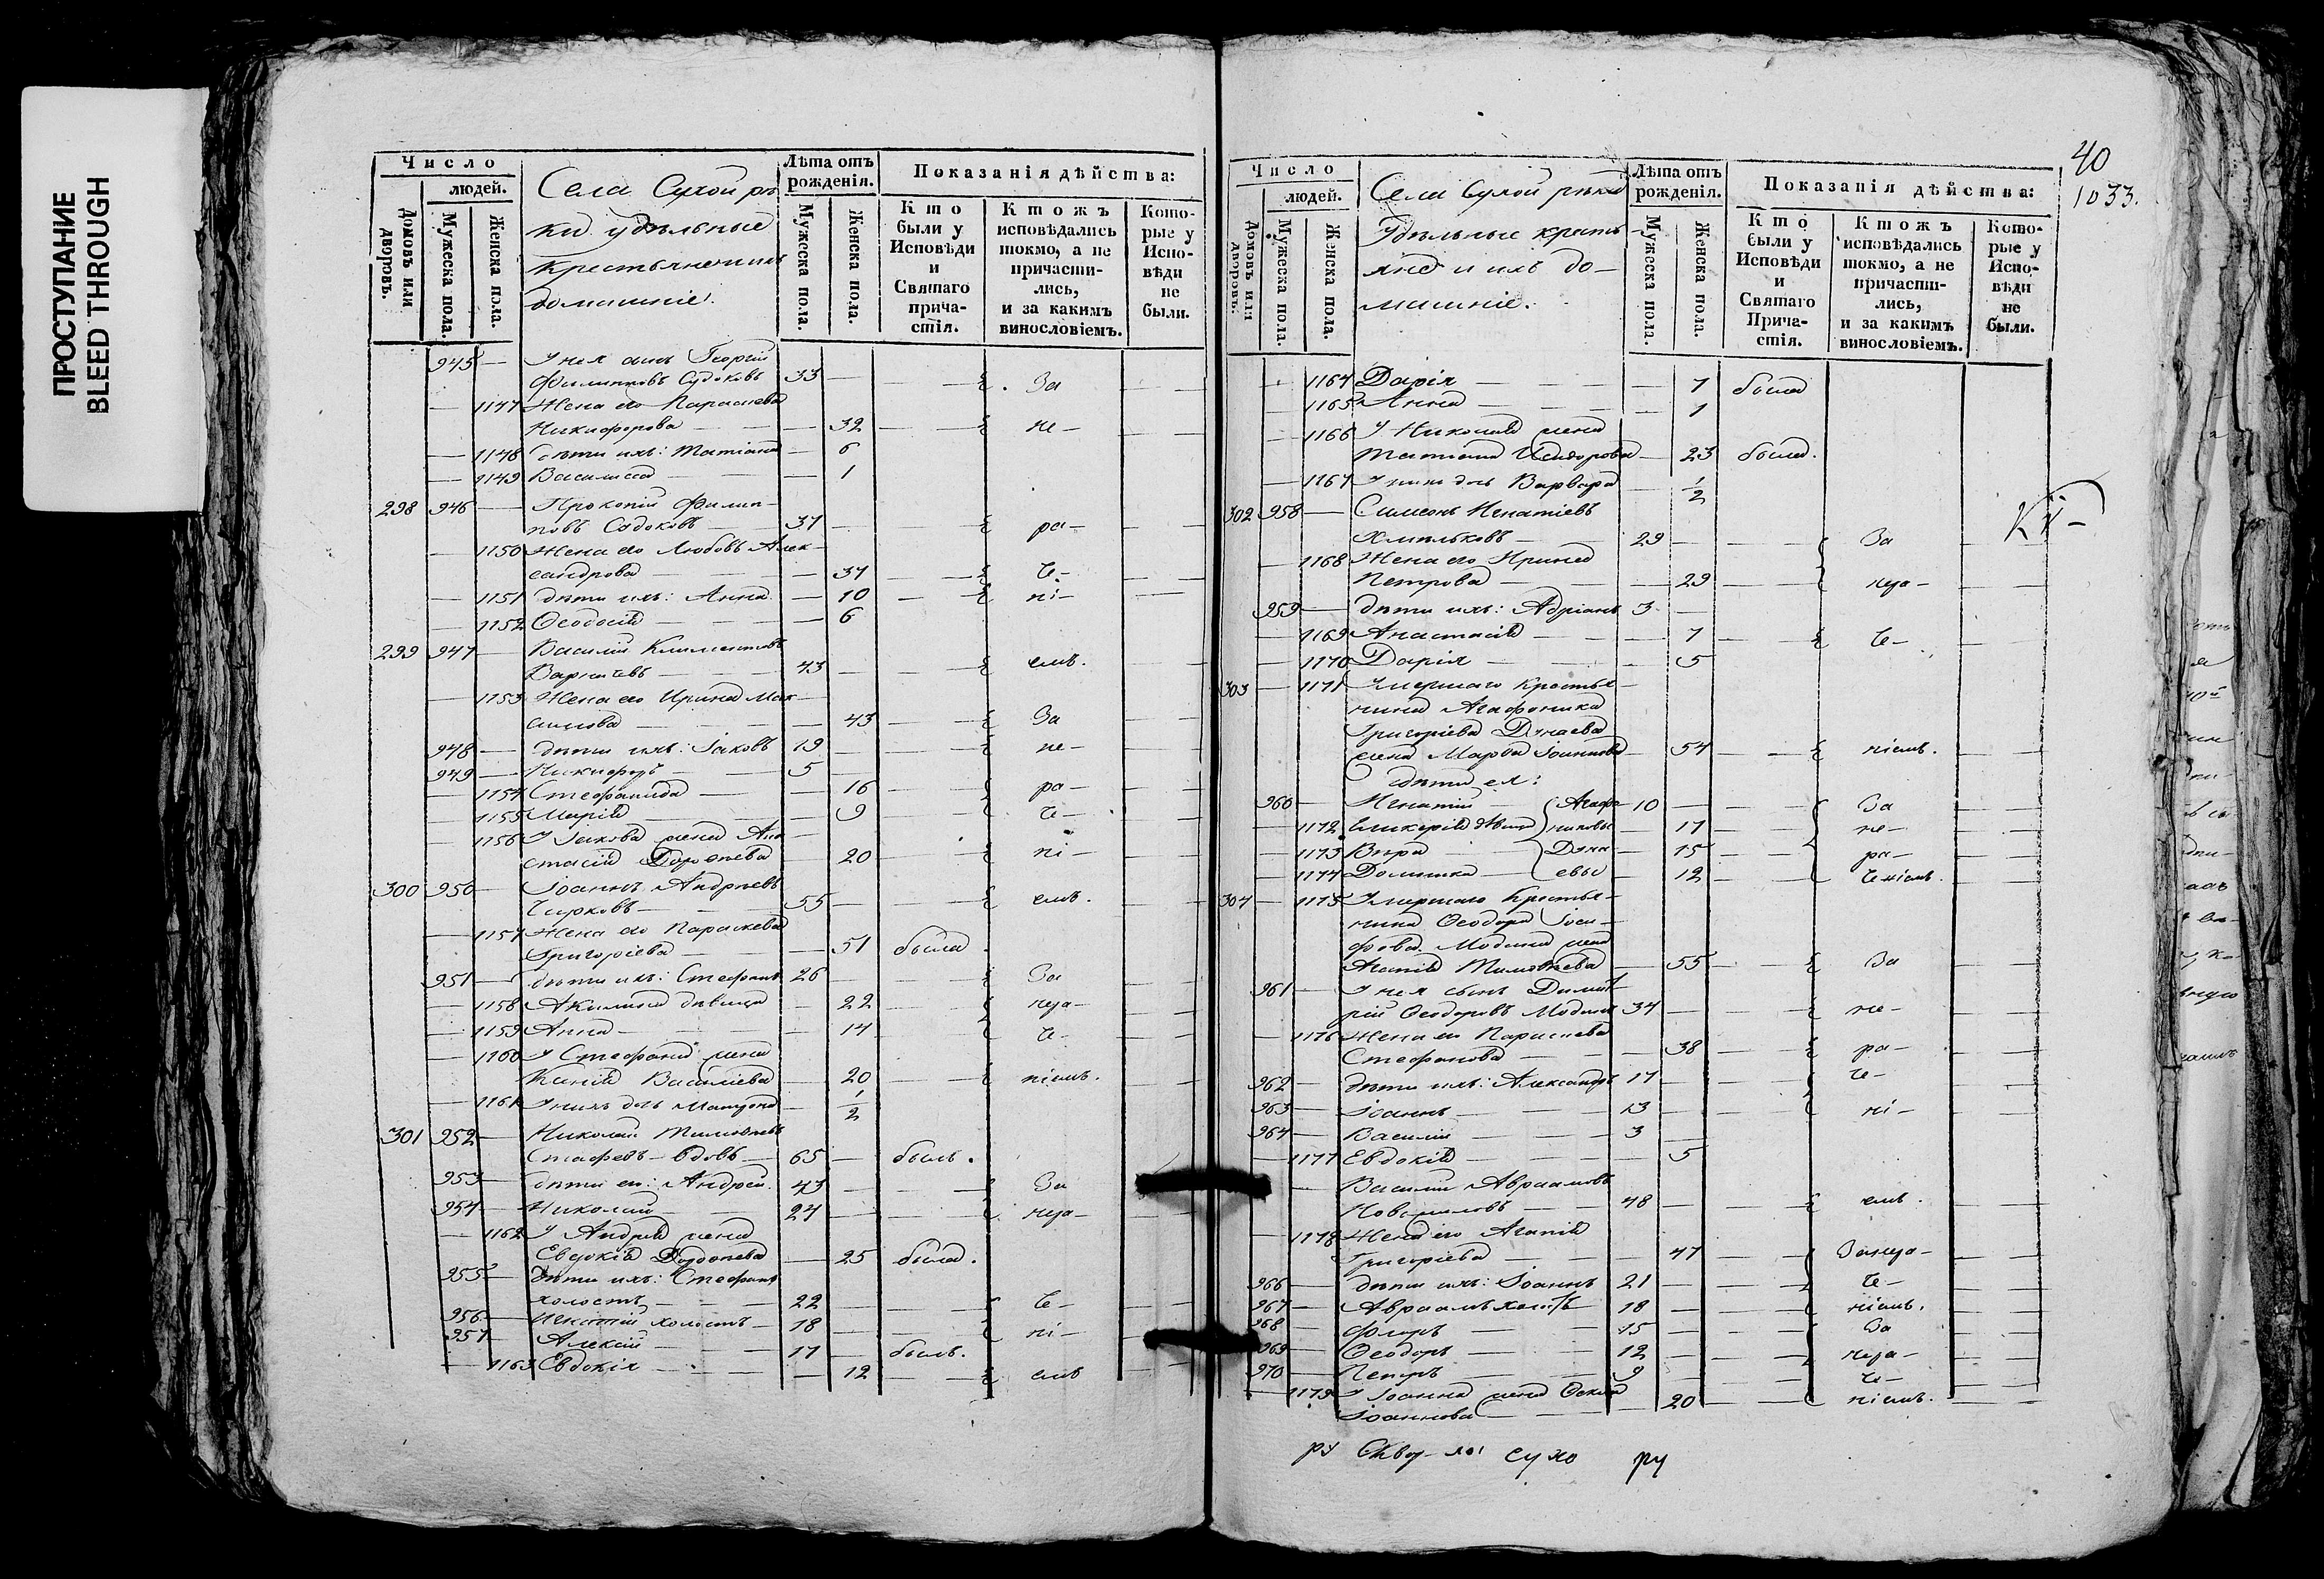 ПРОСТУПАНИЕ
BLEED THROUGH
Число
людей.
Домовъ или дворовъ.
Мужеска пола.
Женска пола.
Села Сухой рѣ-
ки удѣльные
крестьяне и ихъ
домашніе.
Лѣта отъ рожденія.
Мужеска пола.
Женска пола.
Показанія дѣйства:
Кто были у Исповѣди и Святаго причастія.
Ктожъ исповѣдались токмо, а не причастились, и за какимъ винословіемъ.
Которые у Исповѣди не были.
945 — У нея сынъ Георгій
Филипповъ Судоковъ 33 — За
— 1147 Жена его Параскева
Никифорова — 32 не-
— 1148 дѣти ихъ: Татіана — 6
— 1149 Василисса — 1
298 946 — Прокопій Филип-
повъ Судоковъ 37 — ра-
— 1150 Жена его Любовь Алек-
сандрова — 37 че-
— 1151 дѣти ихъ: Анна — 10 ні-
— 1152 Ѳеодосія — 6
299 947 — Василій Климентовъ
43 — емъ.
— 1153 Жена его Ирина Мак-
симова — 43 За
948 — дѣти ихъ: Іаковъ 19 — не-
949 — Никифоръ 5 —
— 1154 Стефанида — 16 ра-
— 1155 Марія — 9 че-
— 1156 У Іакова жена Ана-
стасія Дороѳеева — 20 ні-
300 950 — Іоаннъ Андреевъ
Чирковъ 55 — емъ.
— 1157 Жена его Параскева
Григоріева — 51 была
951 — дѣти ихъ: Стефанъ 26 — За
— 1158 Акилина дѣвица — 22 нера-
— 1159 Анна — 14 че-
— 1160 У Стефана жена
Ксенія Василіева — 20 ніемъ.
— 1161 У нихъ дочь Матрона — 1/2
301 952 — Николай Тимоѳеевъ
вдовъ 65 — былъ.
953 — дѣти его: Андрей 43 — За
954 — Николай 24 — нера-
— 1162 У Андрея жена
Евдокія — 25 была.
955 — дѣти ихъ: Стефанъ
холостъ 22 — че-
956 — Игнатій холостъ 18 — ні-
957 — Алексій 17 — былъ.
— 1163 Евдокія — 12 емъ
40
1033.
Число
людей.
Домовъ или дворовъ.
Мужеска пола.
Женска пола.
Села Сухой рѣки
Удѣльные крестъ-
яне и ихъ до-
машніе.
Лѣта отъ рожденія.
Мужеска пола.
Женска пола.
Показанія дѣйства:
Кто были у Исповѣди и Святаго Причастія.
Ктожъ исповѣдались токмо, а не причастились, и за какимъ винословіемъ.
Которые у Исповѣди не были.
— 1164 Дарія — 7 была
— 1165 Анна — 1
— 1166 У Николая жена
Татіана Исидорова — 23 была.
— 1167 У нихъ дочь Варвара — 1/2
302 958 — Симеонъ Игнатіевъ
Хмѣльковъ 29 — За
— 1168 Жена его Ирина
Петрова — 29 нера-
959 — дѣти ихъ: Адріанъ 3 —
— 1169 Анастасія — 7 че-
— 1170 Дарія — 5
303 — 1171 Умершаго крестья-
нина Агафоника
Григоріева Дунаева
жена Марѳа Іоаннова — 54 ніемъ.
дѣти ея:
960 — Игнатій 10 — За
— 1172 Гликерія дѣвица — 17 не-
— 1173 Вѣра — 15 ра-
— 1174 Домника — 12 ченіемъ.
Агафониковы Дунаевы
304 — 1175 Умершаго крестья-
нина Ѳеодора Іоси-
фова Модина жена
Агапія Тимоѳеева — 55 За
961 — У нея сынъ Димит-
рій Ѳеодоровъ Модинъ 34 — не-
— 1176 Жена его Параскева
Стефанова — 38 ра-
962 — дѣти ихъ: Александръ 17 — че-
963 — Іоаннъ 13 — ні-
964 — Василій 3 —
— 1177 Евдокія — 5
— Василій Авраамовъ
48 — емъ.
— 1178 Жена его Агапія
Григоріева — 47 Занера-
966 — дѣти ихъ: Іоаннъ 21 — че-
967 — Авраамъ холостъ 18 — ніемъ.
968 — Флоръ 15 — За
969 — Ѳеодоръ 12 — нера-
970 — Петръ 9 — че-
— 1179 У Іоанна жена Ѳекла
Іоаннова — 20 ніемъ.
ру сухо ру